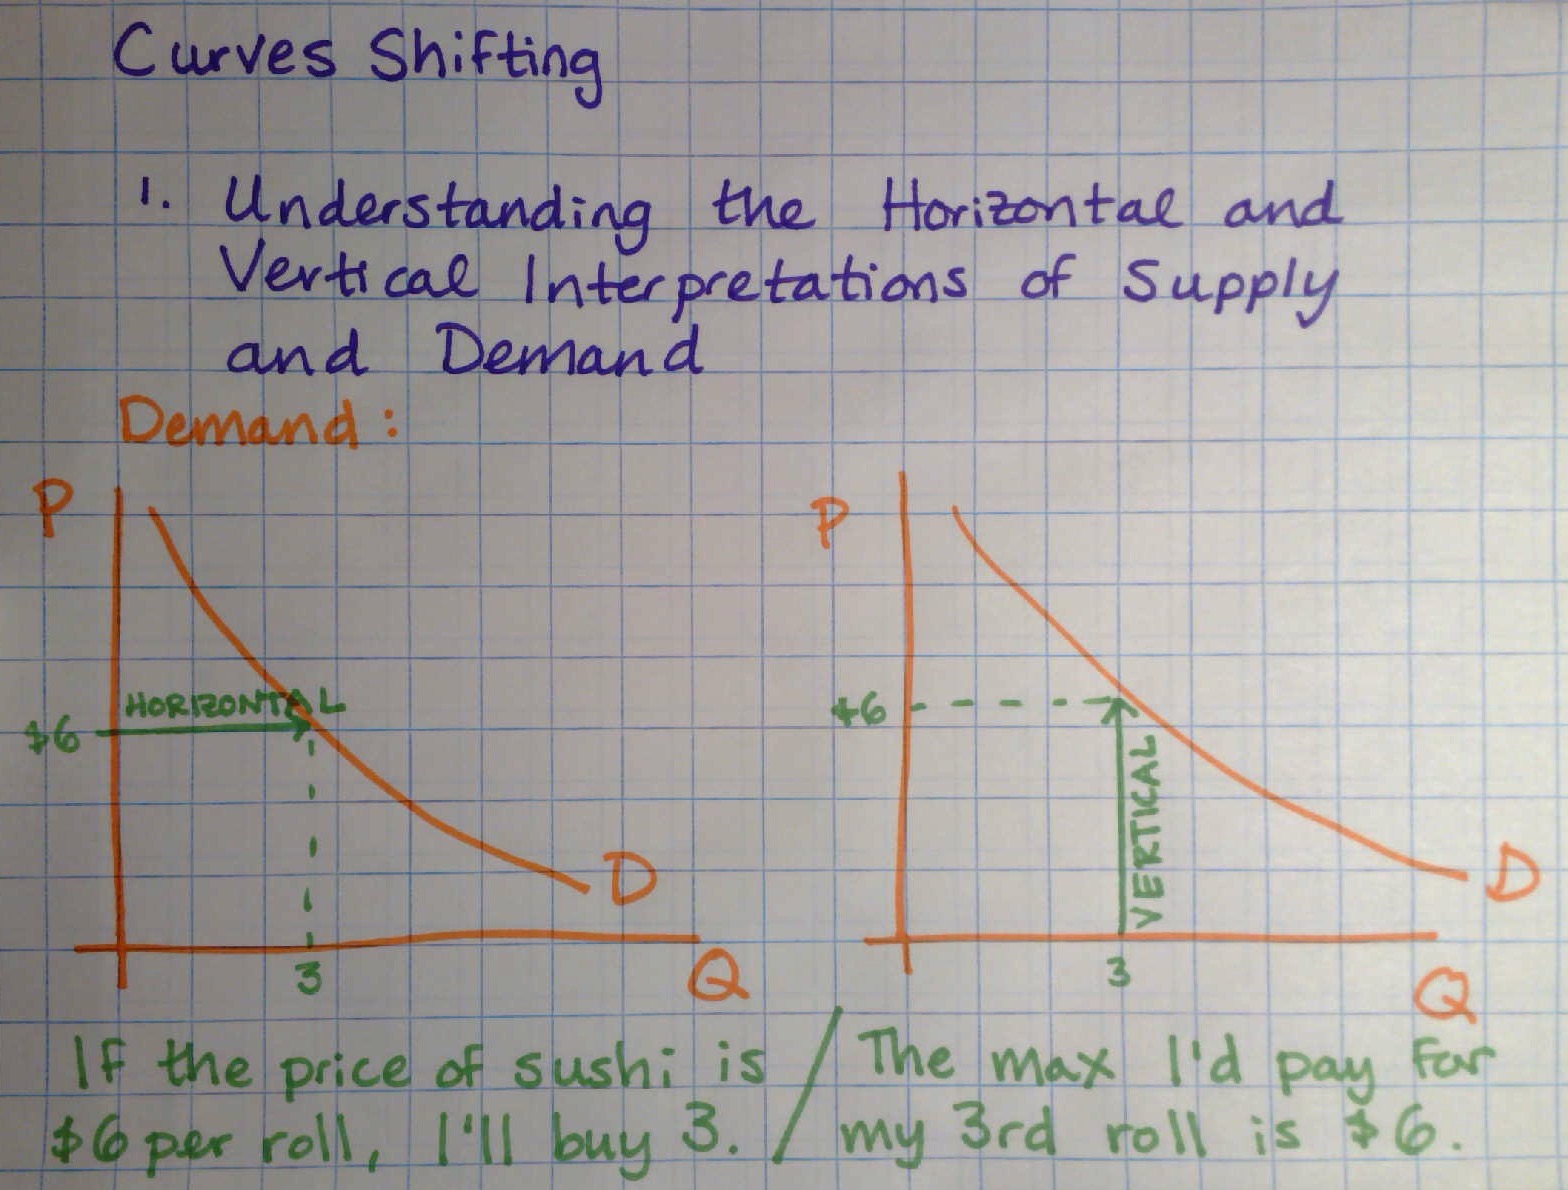 Curves Shifting
1. Understanding the Horizontal and
Vertical Interpretations of Supply
and Demand
Demand:
P
HORIZONTAL
$6
D
3
Q
P
$6
VERTICAL
D
3
Q
If the price of sushi is
$6 per roll, I'll buy 3.
/
The max I'd pay for
my 3rd roll is $6.